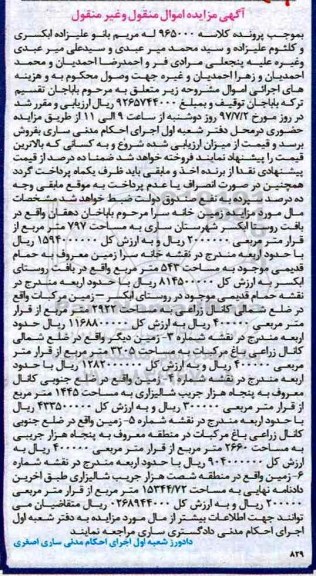 آگهی مزایده اموال منقول وغیر منقول
بموجب پرونده کلاسه ۹۶۵۰۰۰ له مریم بانو علیزاده ایکسری
و کلثوم علیزاده و سید محمد میر عبدی و سیدعلی میر عبدی
وغیره علیه پنجعلی مرادی فر و احمدرضا احمدیان و محمد
احمدیان و زهرا احمدیان و غیره جهت وصول محکوم به و هزینه
های اجرائی اموال مشروحه زیر متعلق به مرحوم باباجان تقسیم
ترکه باباجان توقیف و بمبلغ ۹۲۶۵۷۴۴۰۰۰ ریال ارزیابی و مقرر شد
در روز مورخ ۹۷/۷/۲ روز دوشنبه از ساعت ۹ الی ۱۱ از طریق مزایده
حضوری درمحل دفتر شعبه اول اجرای احکام مدنی ساری بفروش
برسد و قیمت از میزان ارزیابی شده شروع و به کسانی که بالاترین
قیمت را پیشنهاد نمایند فروخته خواهد شد ضمنا ده درصد از قیمت
پیشنهادی نقدا از برنده اخذ و مابقی باید ظرف یکماه پرداخت گردد
همچنین در صورت انصراف یا عدم پرداخت به موقع مابقی وجه
ده درصد سپرده به نفع صندوق دولت ضبط خواهد شد مشخصات
مال مورد مزایده زمین خانه سرا مرحوم باباجان دهقان واقع در
بافت روستا ابکسر شهرستان ساری به مساحت ۷۹۷ متر مربع از
قرار متر مربعی ۲۰۰۰۰۰۰ ریال و به ارزش کل ۱۵۹۴۰۰۰۰۰۰ ریال
با حدود اربعه مندرج در نقشه خانه سرا زمین معروف به حمام
قدیمی موجود به مساحت ۵۴۳ متر مربع واقع در بافت روستای
ابکسر به ارزش کل ۸۱۴۵۰۰۰۰۰ ریال با حدود اربعه مندرج در
نقشه حمام قدیمی موجود در روستای ابکسر – زمین مرکبات واقع
در ضلع شمالی کانال زراعی به مساحت ۲۹۲۲ متر مربع از قرار
متر مربعی ۴۰۰۰۰۰ ریال به ارزش کل ۱۱۶۸۸۰۰۰۰۰ ریال حدود
اربعه مندرج در نقشه شماره ۳- زمین دیگر واقع در ضلع شمالی
کانال زراعی باغ مرکبات به مساحت ۳۲۰۵ متر مربع از قرار متر
مربعی ۴۰۰۰۰۰ ریال و به ارزش کل ۱۲۸۲۰۰۰۰۰۰ ریال با حدود
اربعه مندرج در نقشه شماره ۴- زمین واقع در ضلع جنوبی کانال
معروف به پنجاه هزار جریب شالیزاری به مساحت ۱۴۴۵ متر مربع
از قرار متر مربعی ۳۰۰۰۰۰ ریال و به ارزش کل ۴۳۳۵۰۰۰۰۰ ریال
با حدود اربعه مندرج در نقشه شماره ۵- زمین واقع در ضلع جنوبی
کانال زراعی باغ مرکبات در منطقه معروف به پنجاه هزار جریبی
به مساحت ۲۶۶۰ متر مربع از قرار متر مربعی ۴۰۰۰۰۰ ریال به
ارزش کل ۹۰۴۰۰۰۰۰۰ ریال با حدود اربعه مندرج در نقشه شماره
۶- زمین واقع در منطقه شصت هزار جریب شالیزاری طبق اخرین
دادنامه نهایی به مساحت ۱۵۳۴۴/۷۲ متر مربع از قرار متر مربعی
۲۰۰۰۰۰ ریال و به ارزش کل ۳۰۶۸۹۴۴۰۰۰ ریال متقاضیان می
توانند جهت اطلاعات بیشتر از مال مورد مزایده به دفتر شعبه اول
اجرای احکام مدنی دادگستری ساری مراجعه نمایند
دادورز شعبه اول اجرای احکام مدنی ساری اصغری
۸۲۹